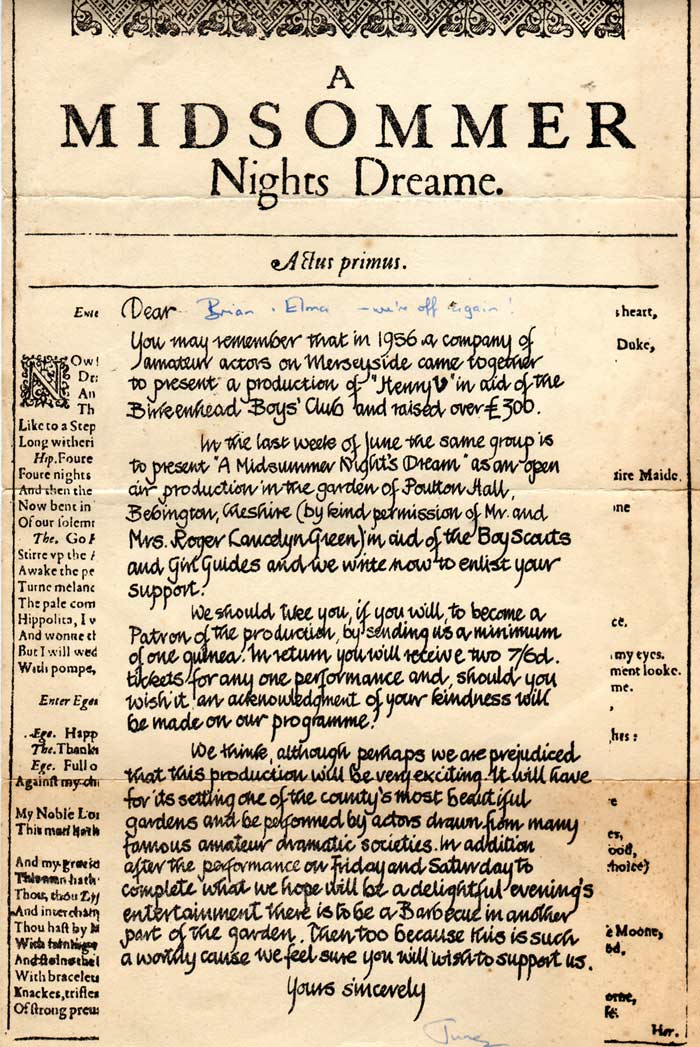 A
MIDSOMMER
Nights Dreame.
Actus primus.
Dear Brian & Elma - we're off again!
You may remember that in 1956 a company of
amateur actors on Merseyside came together
to present a production of "Henry V" in aid of the
Birkenhead Boys' Club and raised over £300.
In the last week of June the same group is
to present "A Midsummer Night's Dream" as an open
air production in the garden of Poulton Hall,
Bebington, Cheshire (by kind permission of Mr. and
Mrs. Roger Lancelyn Green) in aid of the Boy Scouts
and Girl Guides and we write now to enlist your
support.
We should like you, if you will, to become a
Patron of the production, by sending us a minimum
of one guinea. In return you will receive two 7/6d.
tickets for any one performance and, should you
wish it an acknowledgment of your kindness will
be made on our programme.
We think, although perhaps we are prejudiced
that this production will be very exciting. It will have
for its setting one of the county's most beautiful
gardens and be performed by actors drawn from many
famous amateur dramatic societies. In addition
after the performance on Friday and Saturday to
complete what we hope will be a delightful evening's
entertainment there is to be a Barbecue in another
part of the garden. Then too because this is such
a worthy cause we feel sure you will wish to support us.
Yours sincerely
Like to a Step
Long witheri
Hip. Foure
Foure nights
And then the
Now bent in
Of our solem
The. Go
Stirre vp the
Awake the pe
Turne melanc
The pale com
Hippolita, I
And wonne th
But I will wed
With pompe,
Enter Ege
Ege. Happ
The. Thanks
Ege. Full o
Against my chi
My Noble Lor
This man hath
And my gracio
Thou, thou
And interchan
Thou hast by
With braceles
Knackes, trifles
Of strong
heart,
Duke,
Maide.
ne
ce.
my eyes.
ment looke.
me.
hes:
Moone,
Her.